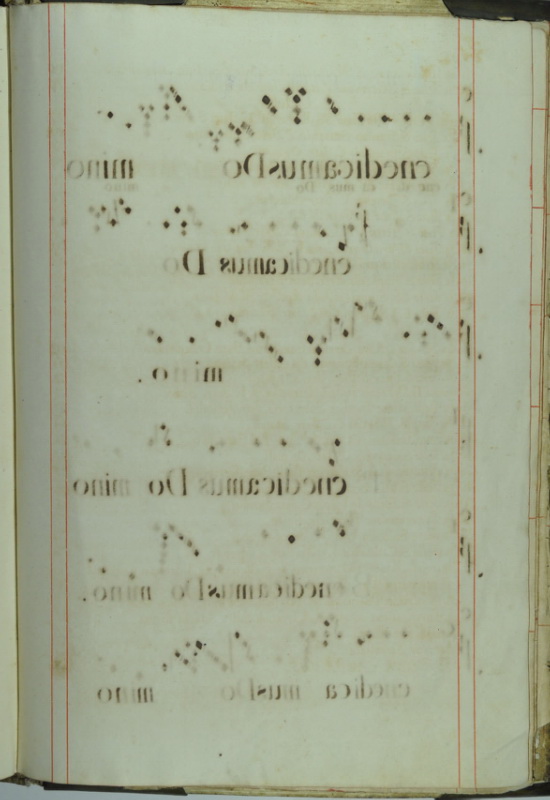 enedicamus Do mino
enedicamus Do
mino.
enedicamus Do mino
enedicamus Do mino.
enedica mus Do mino